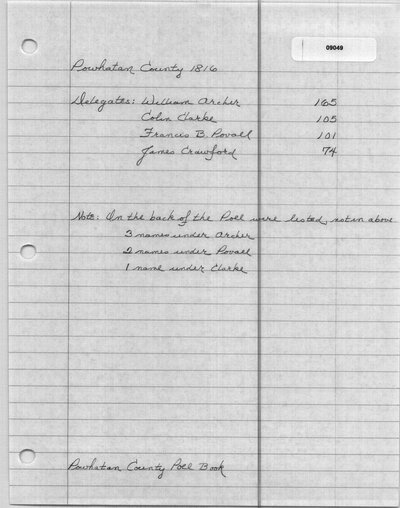 09049
Powhatan County 1816
Delegates: William Archer 165
Colin Clarke 105
Francis B. Povall 101
James Crawford 74
Note: On the back of the Poll were listed, not in above
3 names under Archer
2 names under Povall
1 name under Clarke
Powhatan County Poll Book